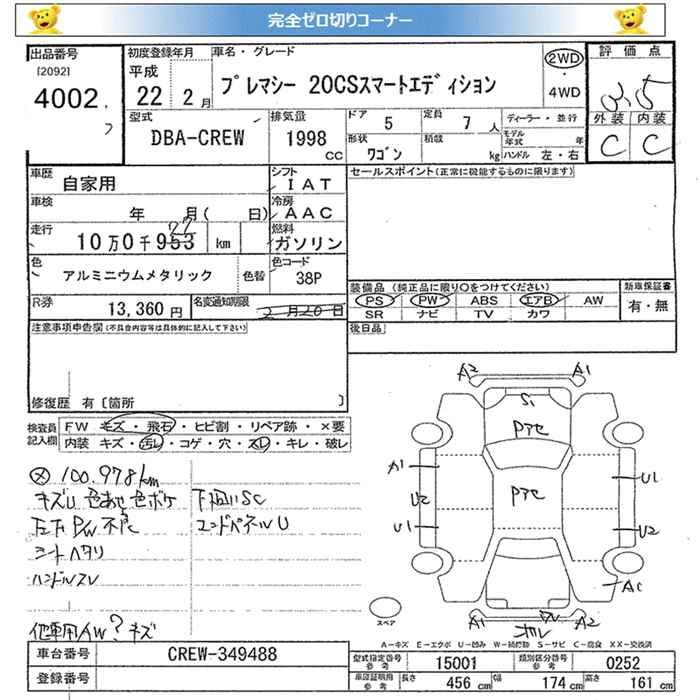 完全ゼロ切りコーナー
出品番号 初度登録年月 車名・グレード 評価点
[2092] 平成 プレマシー 20CSスマートエディション 2WD
4002 22 2月 ・4WD 3.5
型式 排気量 ドア 5 定員 7人 ディーラー・並行 外装 内装
DBA-CREW 1998cc 形状 ワゴン 積載 kg モデル年式 年 C C
ハンドル 左・右
車歴 自家用 シフト IAT セールスポイント(正常に機能するものに限ります)
車検 年 月( 日) 冷房 AAC
走行 10万0千953 km 燃料 ガソリン
色 アルミニウムメタリック 色替 色コード 38P
装備品(純正品に限り○をつけてください) 新車保証書
R券 13,360円 名変通知期限 2月20日 PS PW ABS エアB AW 有・無
SR ナビ TV カワ
注意事項申告欄(不具合内容等は具体的に記入して下さい) 後日品
修復歴 有〔箇所 〕
検査員 FW キズ・飛石・ヒビ割・リペア跡・×要
記入欄 内装 キズ・汚レ・コゲ・穴・スレ・キレ・破レ
100.978km
キズU 色あせ 色ボケ 下廻りSC
P/W不良 エンドパネルU
シートヘタリ
ハンドルスレ
他車用AW? キズ
A2 A1
S1
Pアセ
Pアセ
A1 U1
U2
U1 U2
A1 A2
スペア
A-キズ E-エクボ U-凹み W-補修跡 S-サビ C-腐食 XX-交換済
車台番号 CREW-349488 型式指定番号 参考 15001 類別区分番号 参考 0252
登録番号 車庫証明用 参考 長さ 456cm 幅 174cm 高さ 161cm